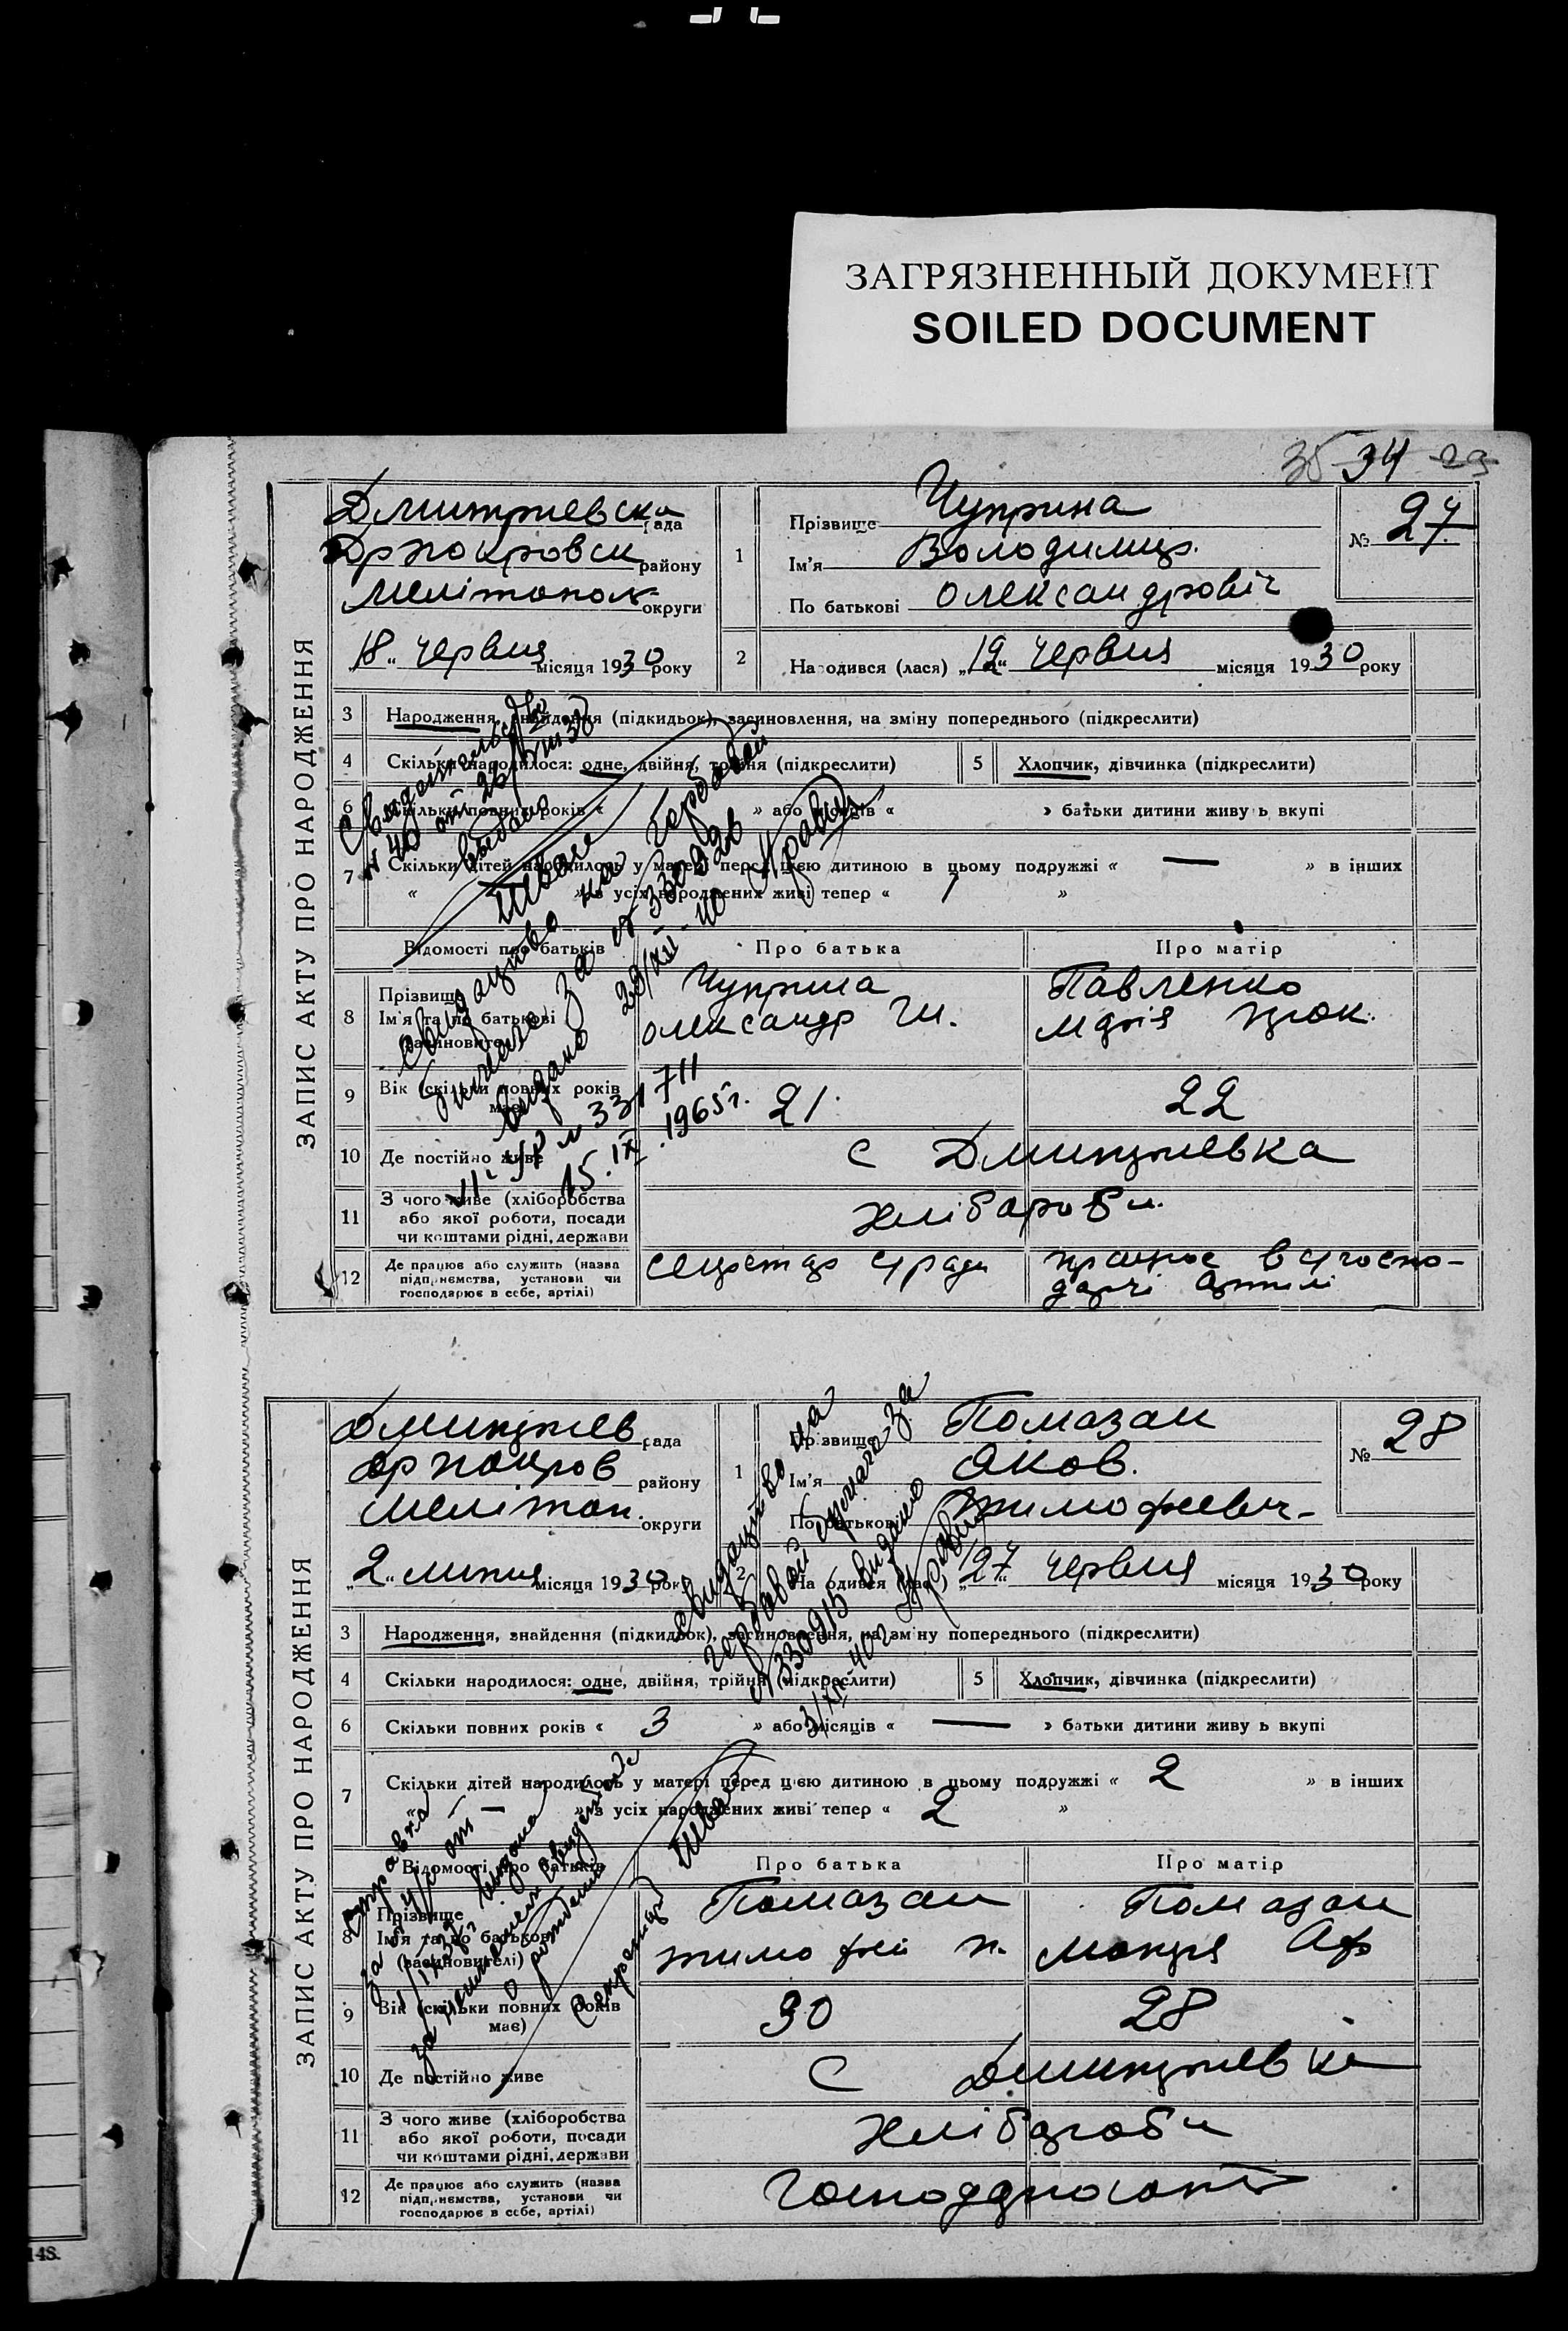 ЗАГРЯЗНЕННЫЙ ДОКУМЕНТ
SOILED DOCUMENT
35 34 29
ЗАПИС АКТУ ПРО НАРОДЖЕННЯ
Дмитриевска рада
району
Мелітопол округи
"18" червня місяця 1930 року
1
Прізвище Чуприна
Ім'я Володимир.
По батькові Олександровіч
№ 27
2
Народився (лася) "12" червня місяця 1930 року
3 Народження, знайдення (підкидьок), засиновлення, на зміну попереднього (підкреслити)
4 Скільки народилося: одне, двійня, трійня (підкреслити)
5 Хлопчик, дівчинка (підкреслити)
6 Скільки повних років « » або місяців « » батьки дитини живуть вкупі
7 Скільки дітей народилось у матері перед цією дитиною в цьому подружжі « — » в інших
« » з усіх народжених живі тепер « 1 »
Відомості про батьків
Про батька
Про матір
8 Прізвище
Ім'я та по батькові
(засиновителі)
Чуприна
Олександр
Павленко
Марія
9 Вік (скільки повних років
має)
21
22
10 Де постійно живе
с Дмитриевка
11 З чого живе (хліборобства
або якої роботи, посади
чи коштами рідні, держави
хлібороби.
12 Де працює або служить (назва
підприємства, установи чи
господарює в себе, артілі)
секретар с/ради
працює в с/госпо-
дарчі артілі
Свидательство
№ 40 от 26/VIII 37
выдано
Свидоцтво на
видано 29/XII-40
№ 331711
15.IX.1965г.
ЗАПИС АКТУ ПРО НАРОДЖЕННЯ
Дмитриев рада
району
Мелітоп. округи
"2" липня місяця 1930 року
1
Прізвище Помазан
Ім'я Яков.
По батькові Тимофеевич
№ 28
2
Народився (лася) "27" червня місяця 1930 року
3 Народження, знайдення (підкидьок), засиновлення, на зміну попереднього (підкреслити)
4 Скільки народилося: одне, двійня, трійня (підкреслити)
5 Хлопчик, дівчинка (підкреслити)
6 Скільки повних років « 3 » або місяців « — » батьки дитини живуть вкупі
7 Скільки дітей народилось у матері перед цією дитиною в цьому подружжі « 2 » в інших
« — » з усіх народжених живі тепер « 2 »
Відомості про батьків
Про батька
Про матір
8 Прізвище
Ім'я та по батькові
(засиновителі)
Помазан
Тимофей п.
Помазан
Аф
9 Вік (скільки повних років
має)
30
28
10 Де постійно живе
С Дмитриевка
11 З чого живе (хліборобства
або якої роботи, посади
чи коштами рідні, держави
Хлібороби
12 Де працює або служить (назва
підприємства, установи чи
господарює в себе, артілі)
Свидоцтво на
гербовой бумаги за
№ 330915 видано
справка
выдана
о рождении
секретарь
148.